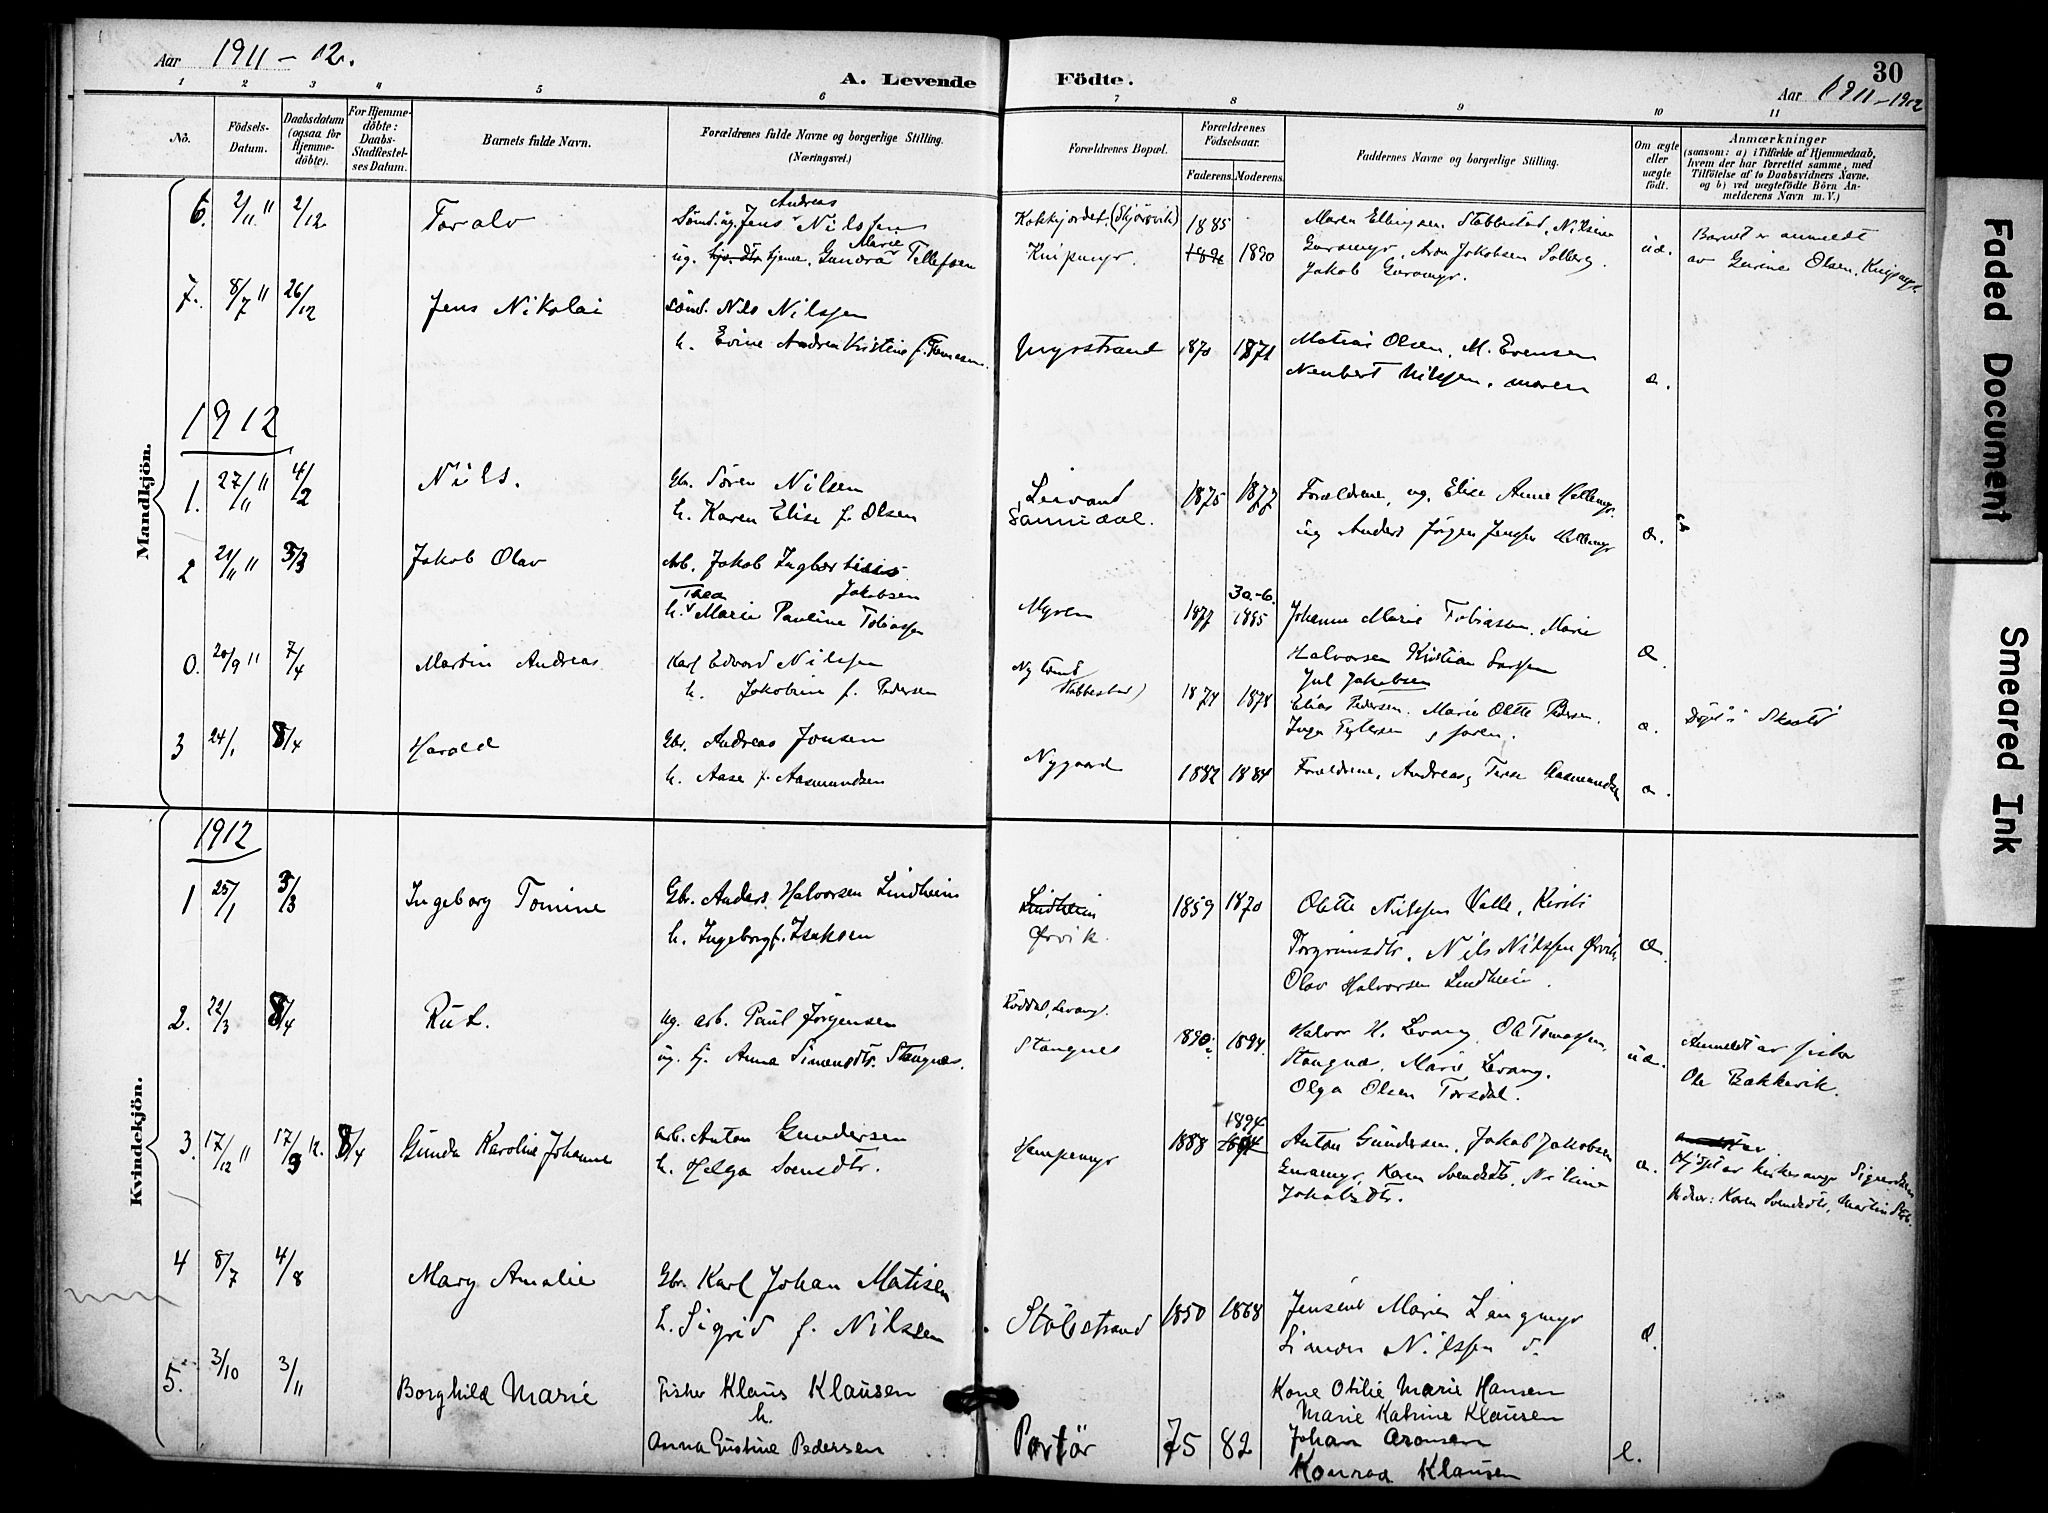 Aar 1911 – 12.
A. Levende Födte.
30
Aar 1911 – 1912
1 2 3 4 5 6 7 8 9 10 11
No. Födsels-Datum. Daabsdatum (ogsaa for Hjemme-döbte). For Hjemme-döbte: Daabs-Stadfæstel-ses Datum. Barnets fulde Navn. Forældrenes fulde Navne og borgerlige Stilling. (Næringsvei.) Forældrenes Bopæl. Forældrenes Födselsaar. Faderens. Moderens. Faddernes Navne og borgerlige Stilling. Om ægte eller uægte födt. Anmærkninger
(saasom: a) i Tilfælde af Hjemmedaab, hvem der har forrettet samme, med Tilföielse af to Daabsvidners Navne, og b) ved uægtefödte Börn An-melderens Navn m. V.)
Mandkjön.
6. 2/11 " 2/12 Toralv
Andreas
Sömd. ug. Jens Nilssen
Marie
ug. tjene. Gundra Tellefsen
Knipmyr. 1885 1890
Maren Ellingsen Stabbestad, Nilsine
Guramyr, Aron Jakobsen Solberg.
Jakob Guramyr.
uæ. Barnet er anmeldt
av Gurine Olsen, Knipmyr.
7. 8/7 " 26/12 Jens Nikolai
Sömd. Nils Nilssen
h. Evine Andrea Kristine f.
Myrstrand 1870 1871
Matias Olsen, M. Evensen
Nilssen, Maren
æ.
1912
1. 27/11 " 4/2 Nils.
Gbr. Sören Nilsen
h. Karen Elise f. Olsen
Sannidal. 1875 1877
Forældrene, ug. Elise Anne
ug Anders Jörgen Jenssen
æ.
2 21/11 " 3/3 Jakob Olav
Arb. Jakob Ingbertsen
Thea Jakobsen
h. Marie Pauline Tobiassen
Myren 1877 1885
Johanne Marie Tobiassen, Marie
Halvorsen Kristian Larssen
Jul Jakobsen
æ.
0. 20/9 " 7/4 Martin Andreas
Karl Edvard Nilssen
h. Jakobine f. Pedersen
Stabbestad) 1874 1878
Elias Pedersen. Marie Olette Pedersen.
æ.
3 24/1 8/4 Harald
Gbr. Andreas Jonsen
h. Aase f. Aasmundsen
Nygaard 1882 1884
Forældrene, Andreas, Tarse Aasmundsen
æ.
Kvindekjön.
1912
1 25/1 3/3 Ingeborg Tomine
Gbr. Anders Halvorsen Lindheim
h. Ingeborg f. Isaksen
Lindheim
Ørvik. 1859 1870
Olette Nilssen Valle, Kirsti
Torgrimsdtr. Nils Nilssen Ørvik,
Olav Halvorsen Lindheim.
æ.
2. 22/3 8/4 Rut.
ug. arb. Paul Jörgensen
ug. tj. Anna Simonsdtr. Stangnes.
Röddal, Levang.
Stangnes 1890 1894.
Halvor H. Levang, Ole Tomassen,
Stangnes, Marie Levang.
Olga Olsen Torsdal.
uæ. Anmeldt av fisker
Ole Bakkevik.
3. 17/12 " 17/3 12. 8/4 Gunda Karoline Johanne
arb. Anton Gundersen
h. Helga Svensdtr.
Hampemyr 1888 1894
Anton Gundersen, Jakob Jakobsen
Guramyr, Karen Svendsdtr, Nilsine
Jakobsdtr.
æ.
Hjdpt av kirkesanger Sigurdsen
Vidner: Karen Svendsdtr, Martin Stab.
4 8/7 4/8 Mary Amalie
Gbr. Karl Johan Matisen
h. Sigrid f. Nilssen
Stölestrand 1850 1868
Jensine Marie Lingmyr
Simon Nilssen
æ.
5. 3/10 3/11 Borghild Marie
Fisker Klaus Klausen
h.
Anna Gustine Pedersen
Portör 75 82
Kone Otilie Marie Hansen
Marie Katrine Klausen
Johan Aronsen
Konrad Klausen
e.
Faded Document
Smeared Ink